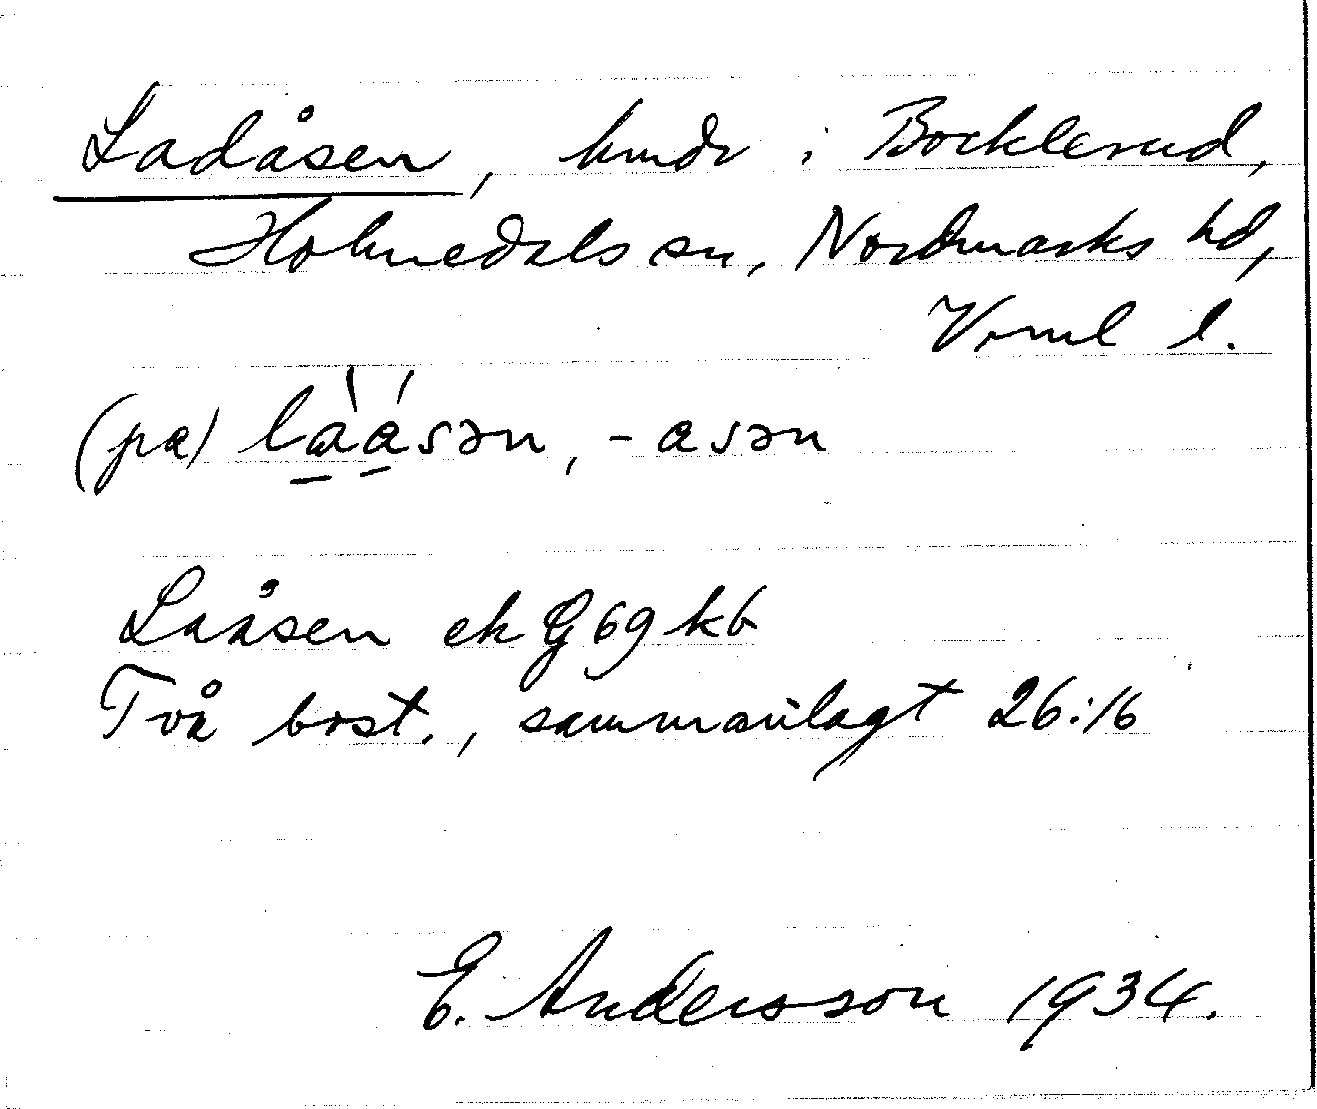 Ladåsen, hmdr i Bocklerud,
Holmedals sn, Nordmarks hd,
Vrml l.
(pa) làásən, -asən
Laåsen ek G 69 k6
Två bost., sammanlagt 26:16
E. Andersson 1934.